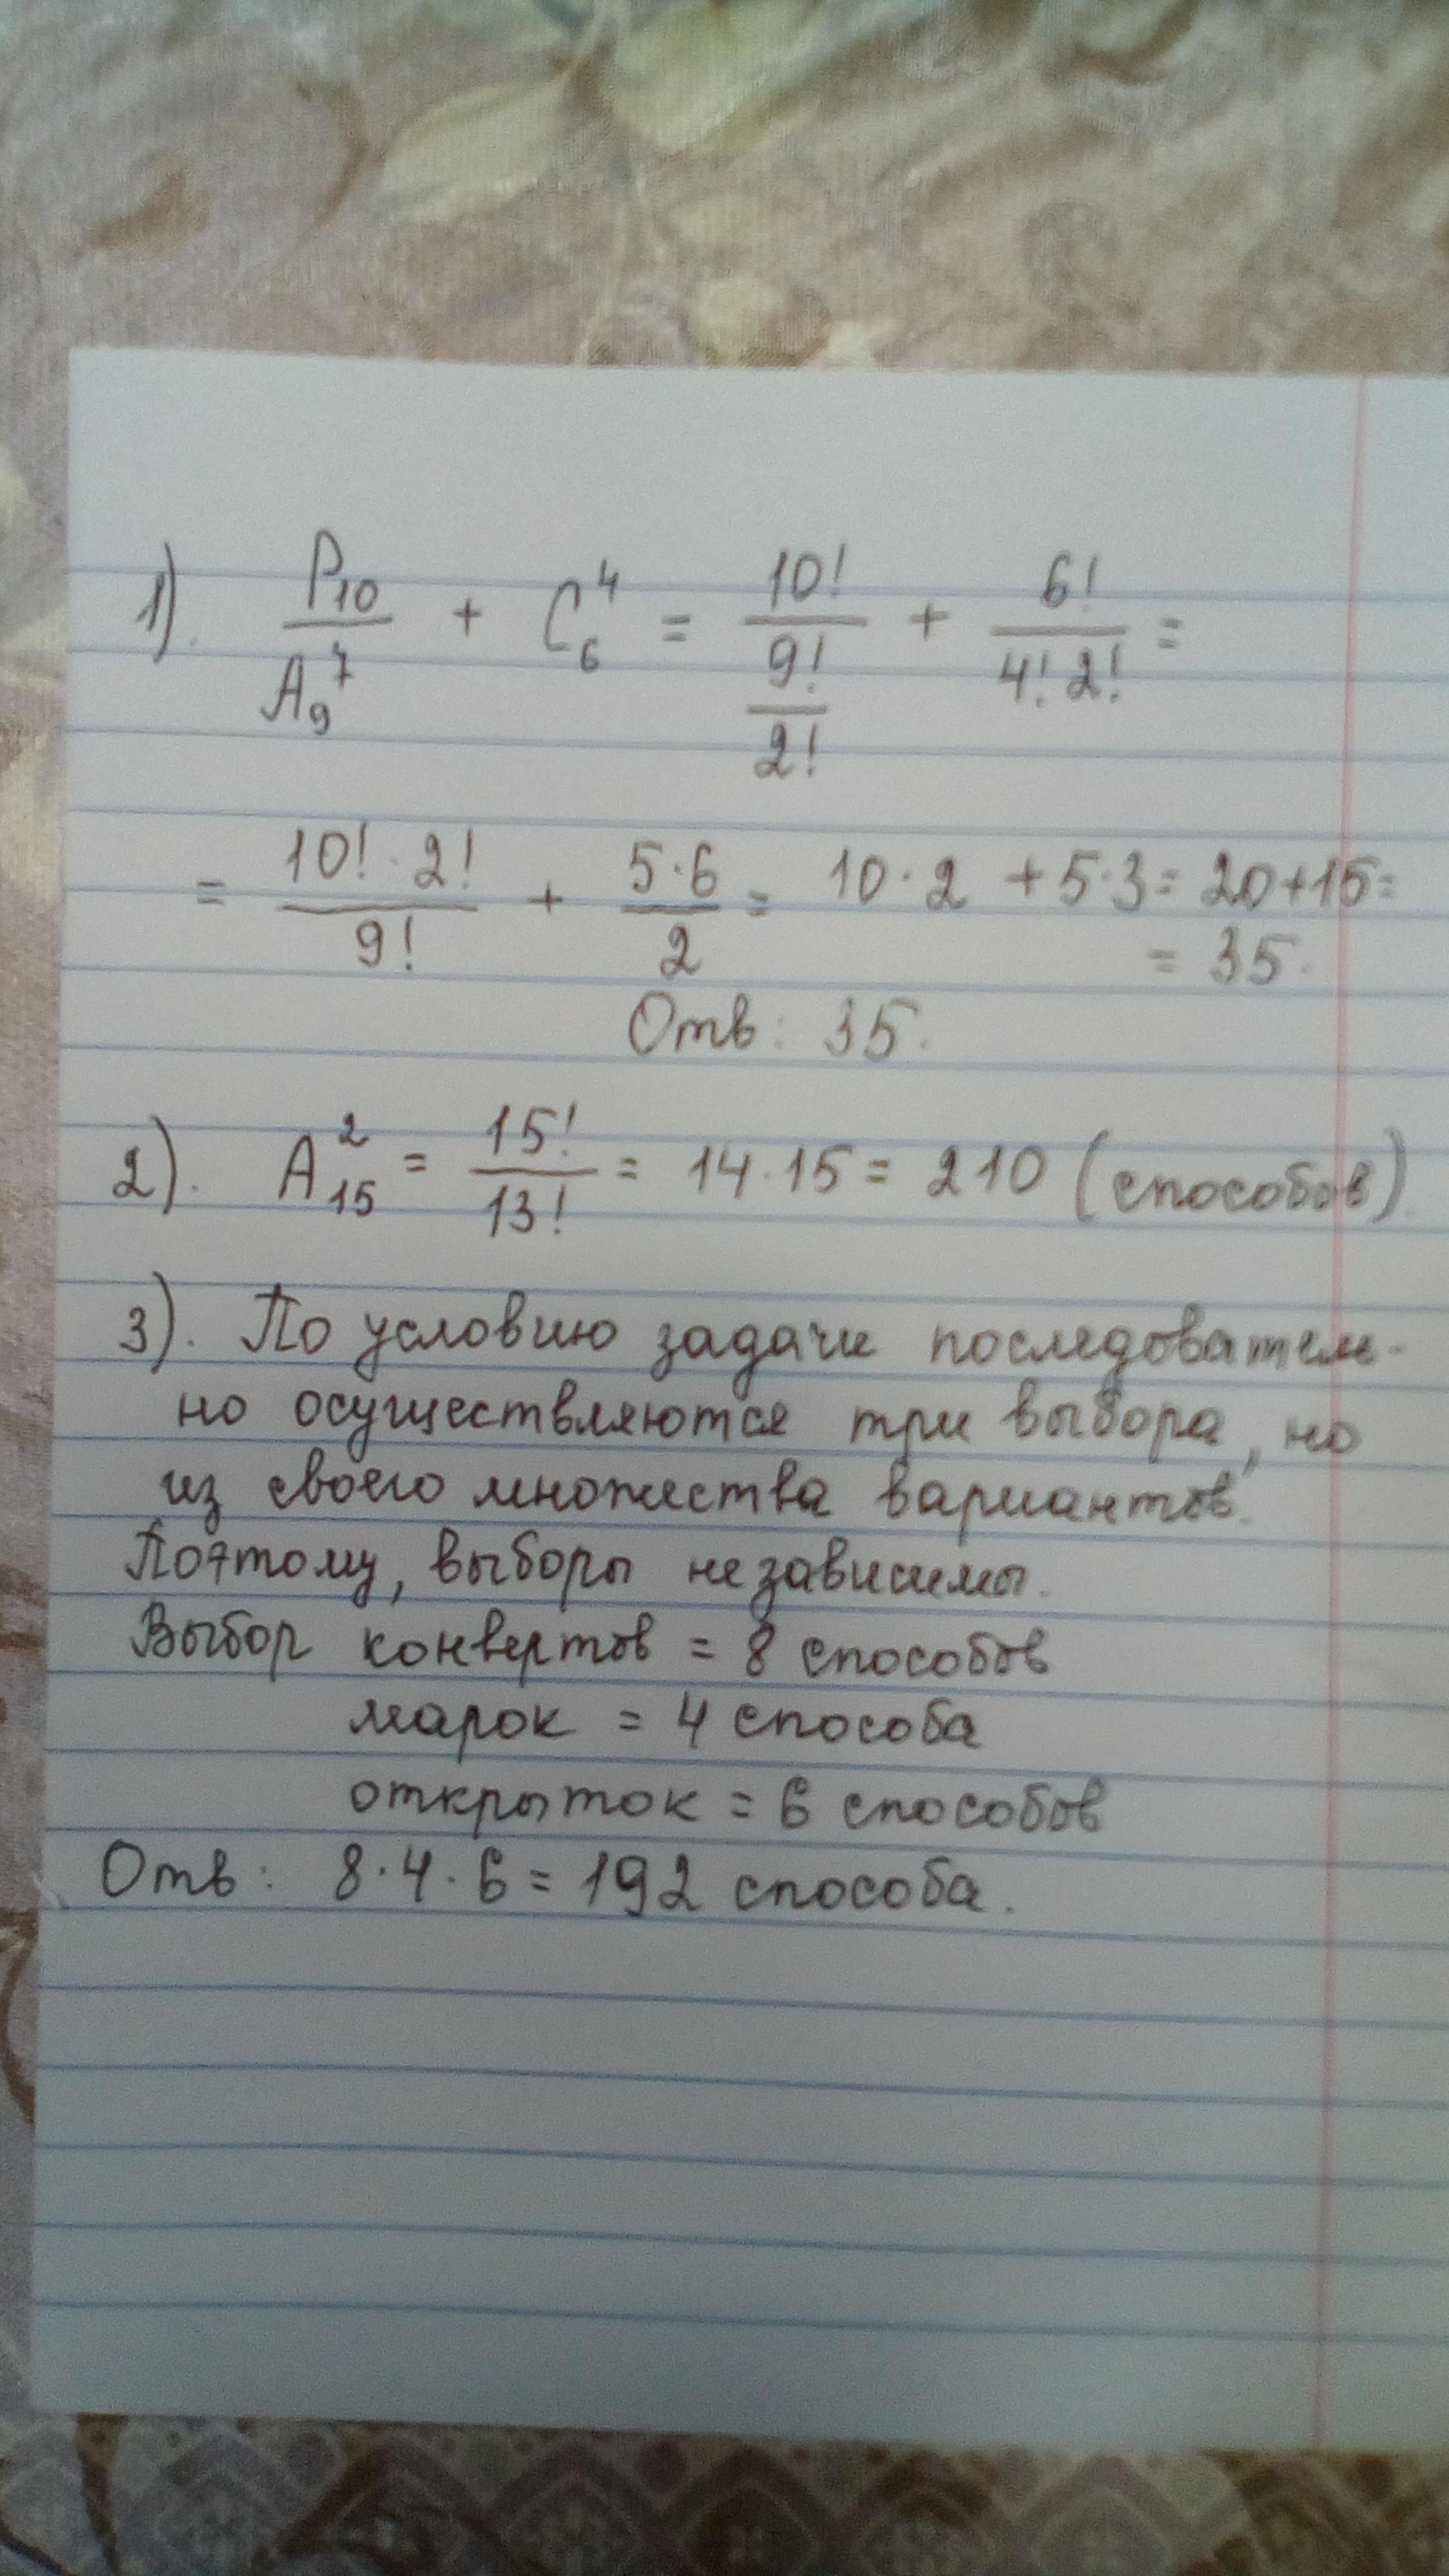 1). P₁₀/A₉⁷ + C₆⁴ = 10!/(9!/2!) + 6!/(4! 2!) =
= 10! · 2!/9! + 5·6/2 = 10·2 + 5·3 = 20+15 =
= 35.
Отв: 35.
2). A₁₅² = 15!/13! = 14·15 = 210 (способов).
3). По условию задачи последователь-
но осуществляются три выбора, но
из своего множества вариантов.
Поэтому, выборы независимы.
Выбор конвертов = 8 способов
марок = 4 способа
открыток = 6 способов
Отв: 8·4·6 = 192 способа.